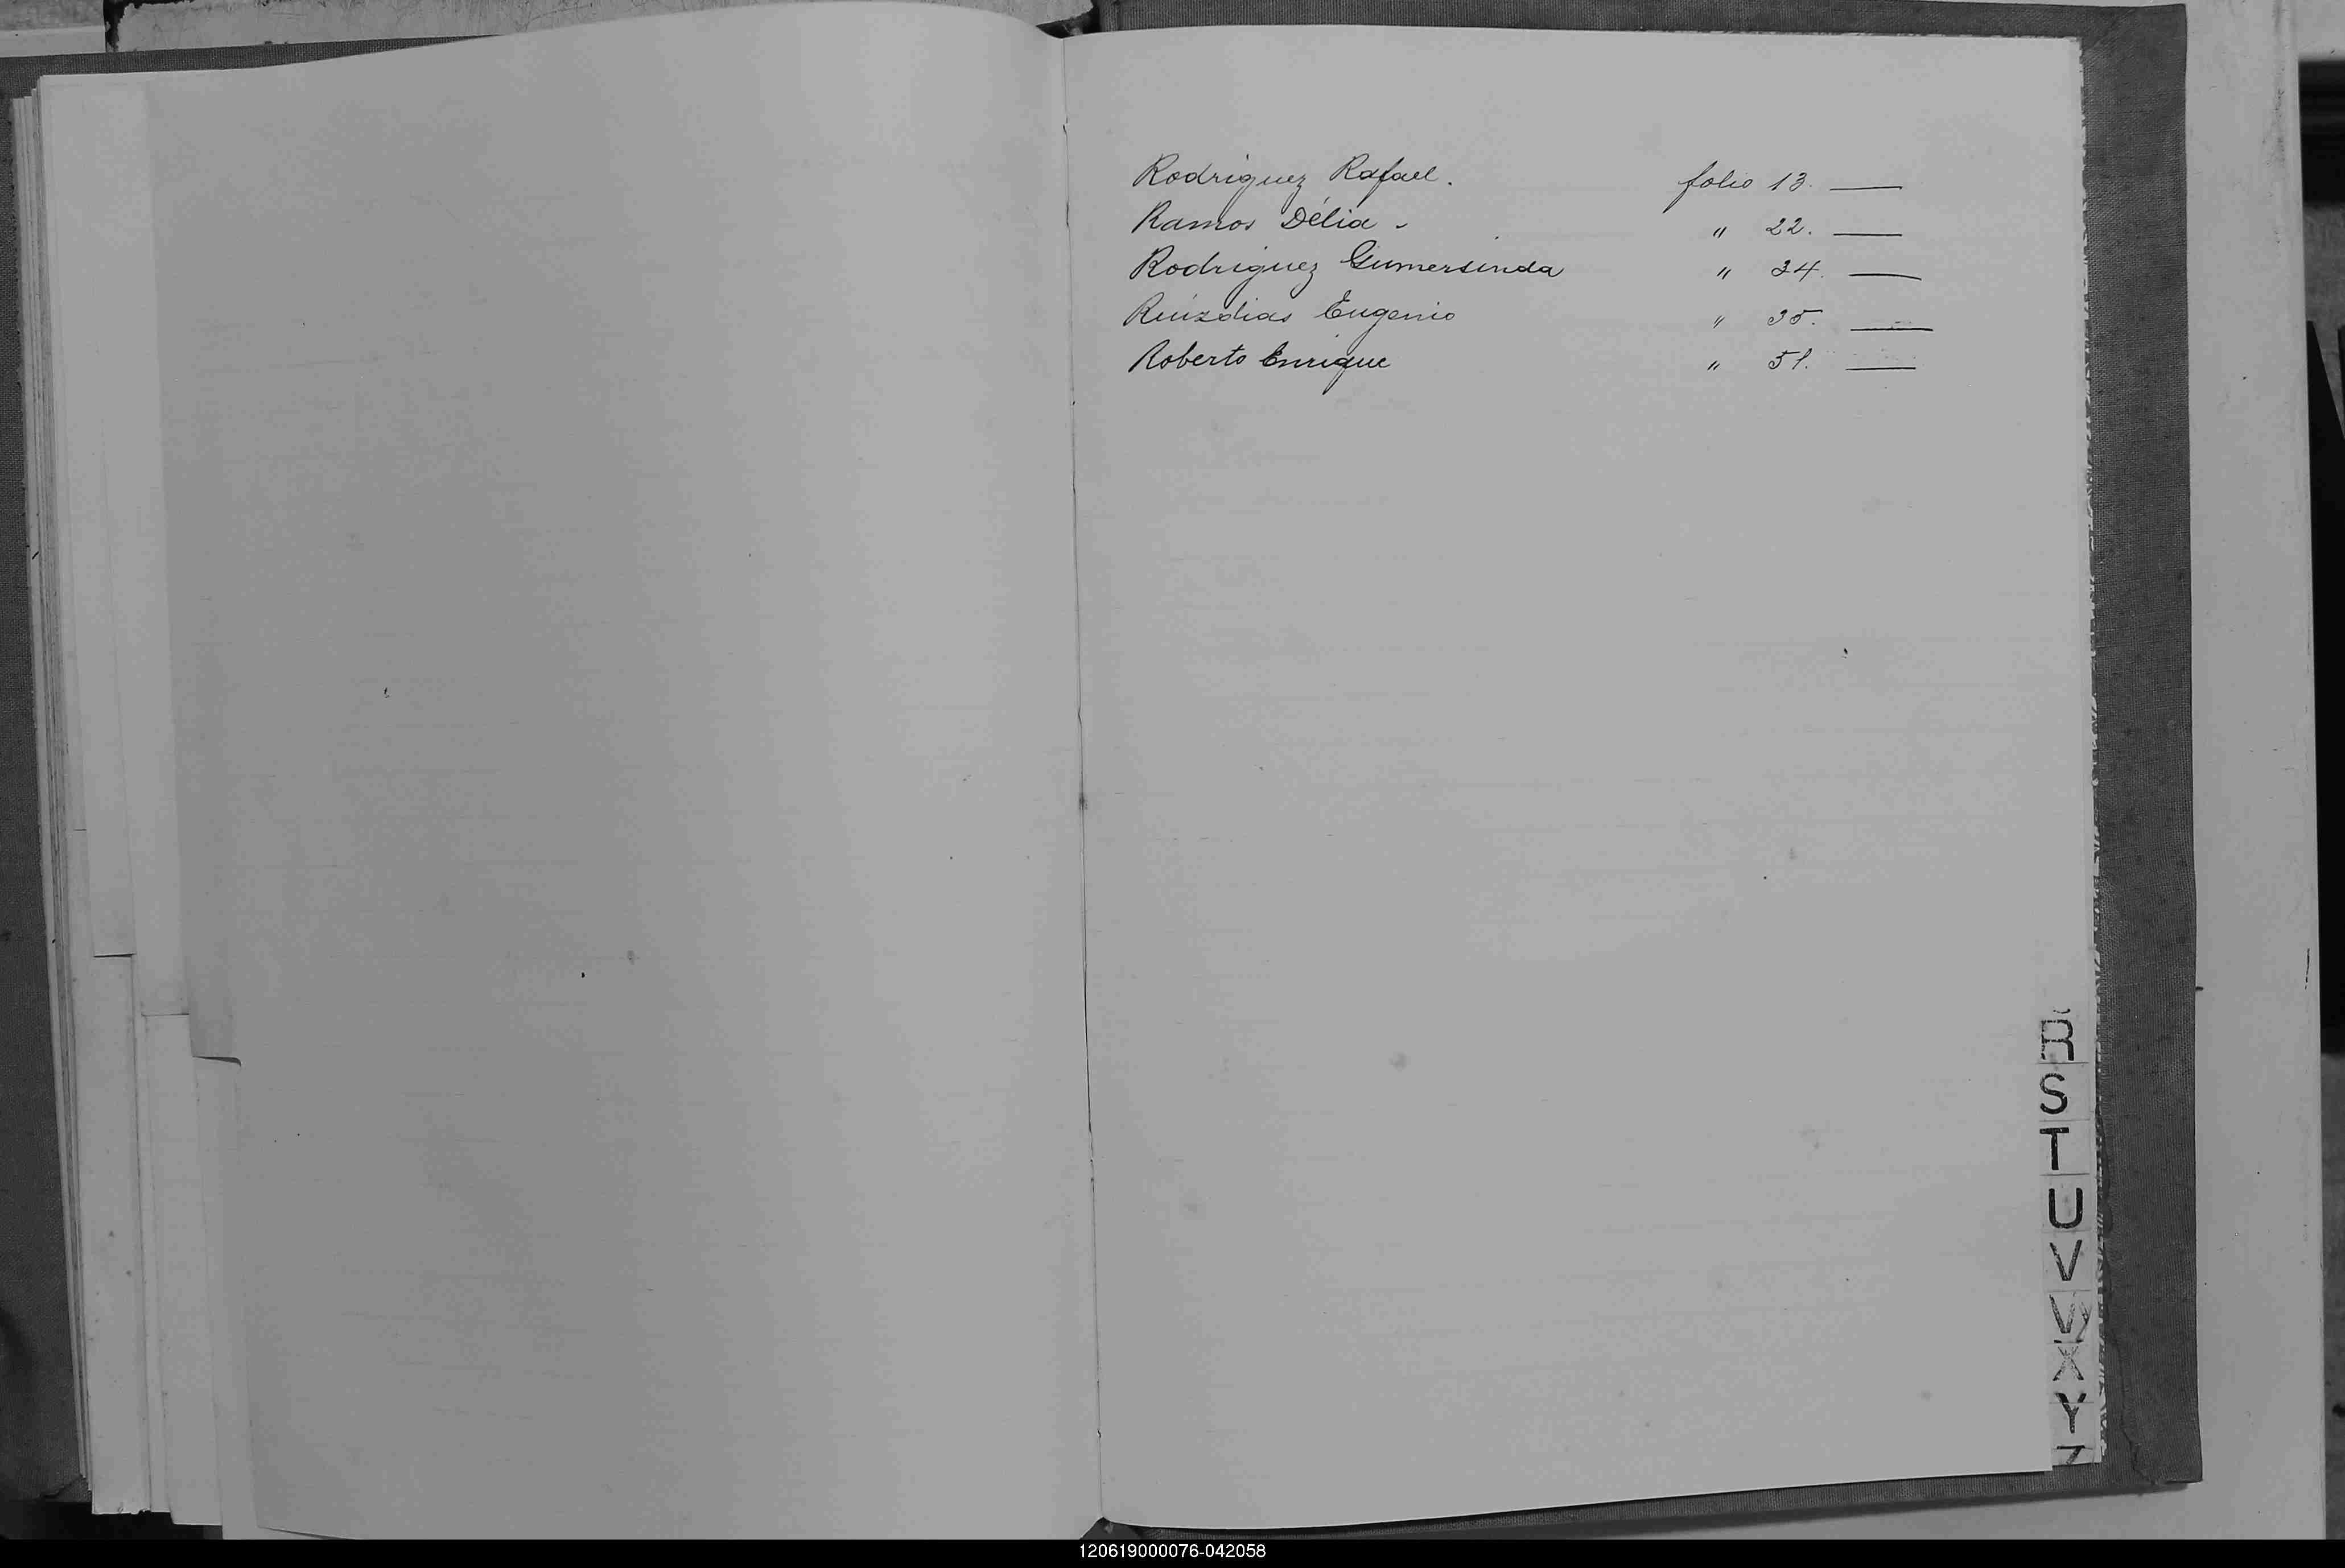 Rodriguez Rafael. folio 13. —
Ramos Délia - " 22. —
Rodriguez Gumersinda " 34. —
Ruizdias Eugenio " 35. —
Roberto Enrique " 51. —
R
S
T
U
V
W
X
Y
Z
120619000076-042058